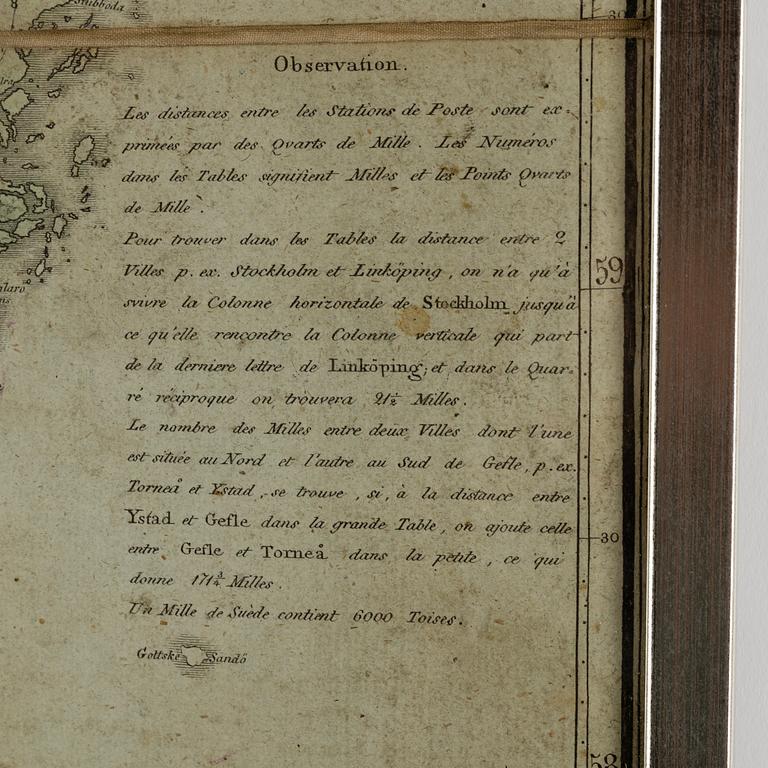 Observation.
Les distances entre les Stations de Poste sont ex-
primées par des Qvarts de Mille. Les Numéros
dans les Tables signifient Milles et les Points Qvarts
de Mille.
Pour trouver dans les Tables la distance entre 2
Villes p. ex. Stockholm et Linköping, on n'a qu'à
svivre la Colonne horizontale de Stockholm jusqu'à
ce qu'elle rencontre la Colonne verticale qui part
de la derniere lettre de Linköping; et dans le Quar-
ré réciproque on trouvera 21½ Milles.
Le nombre des Milles entre deux Villes dont l'une
est située au Nord et l'autre au Sud de Gefle, p. ex.
Torneå et Ystad, se trouve, si, à la distance entre
Ystad et Gefle dans la grande Table, on ajoute celle
entre Gefle et Torneå dans la petite, ce qui
donne 171¾ Milles.
Un Mille de Suède contient 6000 Toises.
Gottske Sandö
30
59
30
58